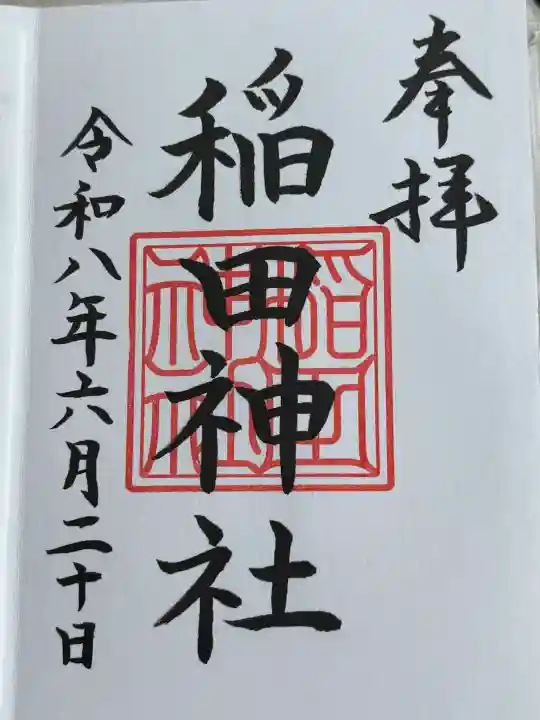 奉拝
稲田神社
令和八年六月二十日